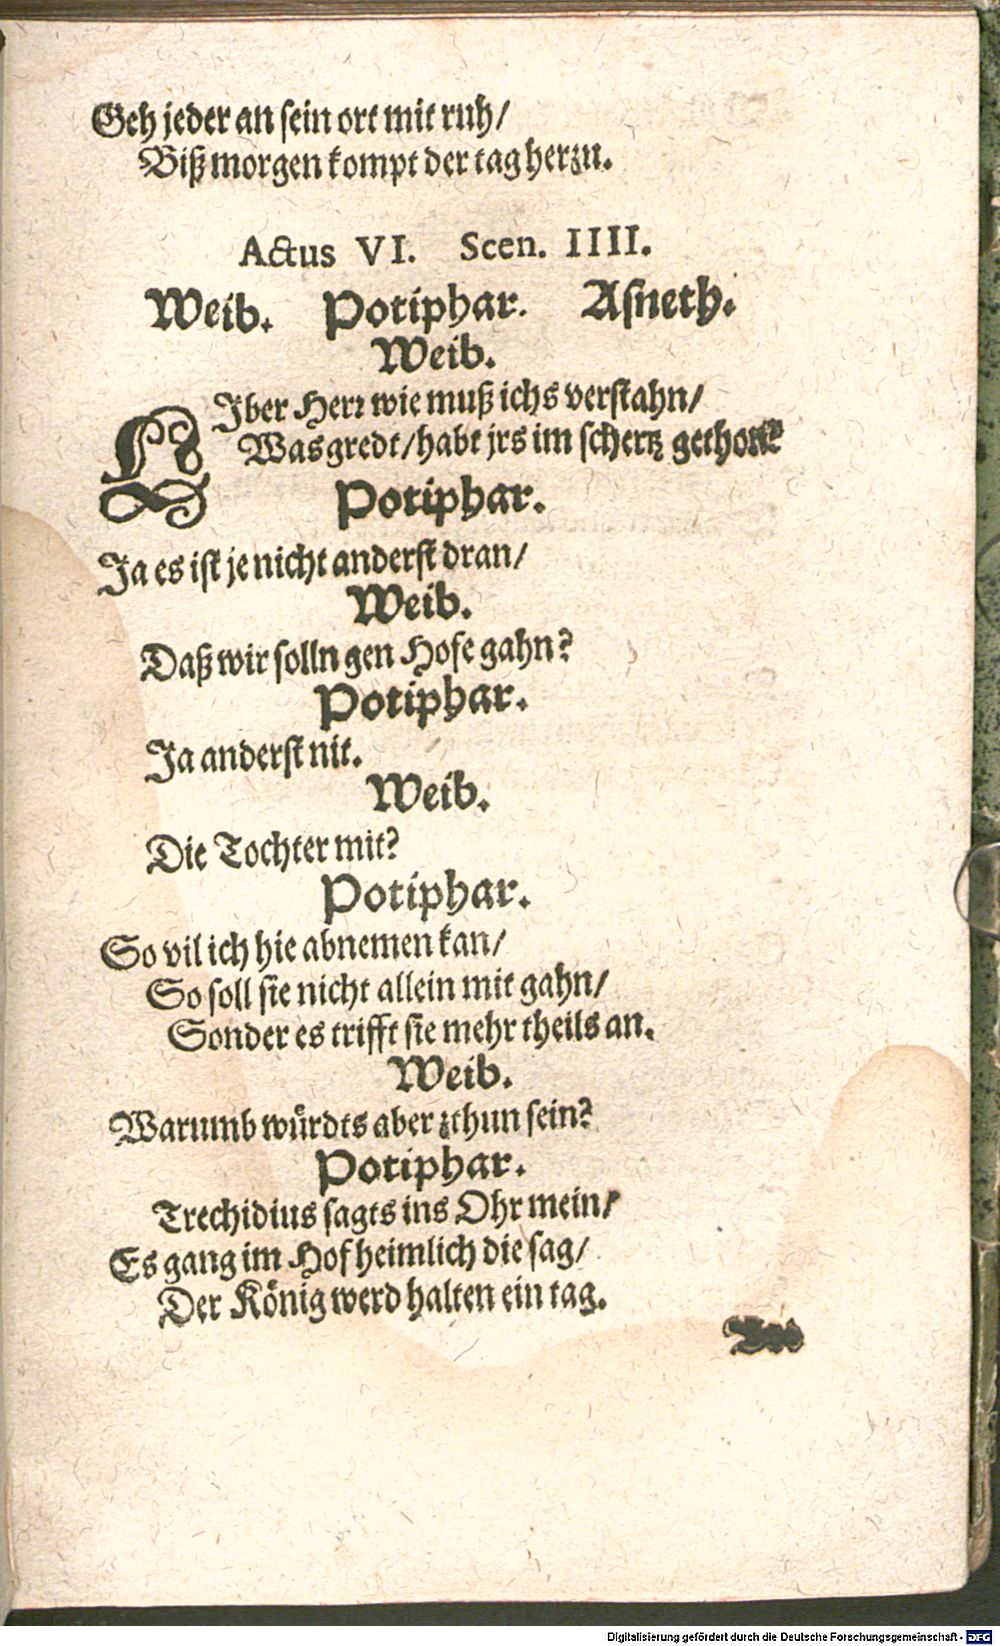 Geh jeder an sein ort mit ruh/
Biß morgen kompt der tag herzu.
Actus VI. Scen. IIII.
Weib. Potiphar. Asneth.
Weib.
LIber Herr wie muß ichs verstahn/
Was gredt/habt jrs im schertz gethon?
Potiphar.
Ja es ist je nicht anderst dran/
Weib.
Daß wir solln gen Hofe gahn?
Potiphar.
Ja anderst nit.
Weib.
Die Tochter mit?
Potiphar.
So vil ich hie abnemen kan/
So soll sie nicht allein mit gahn/
Sonder es trifft sie mehr theils an.
Weib.
Warumb wuͤrdts aber zthun sein?
Potiphar.
Trechidius sagts ins Ohr mein/
Es gang im Hof heimlich die sag/
Der Koͤnig werd halten ein tag.
Digitalisierung gefördert durch die Deutsche Forschungsgemeinschaft - DFG